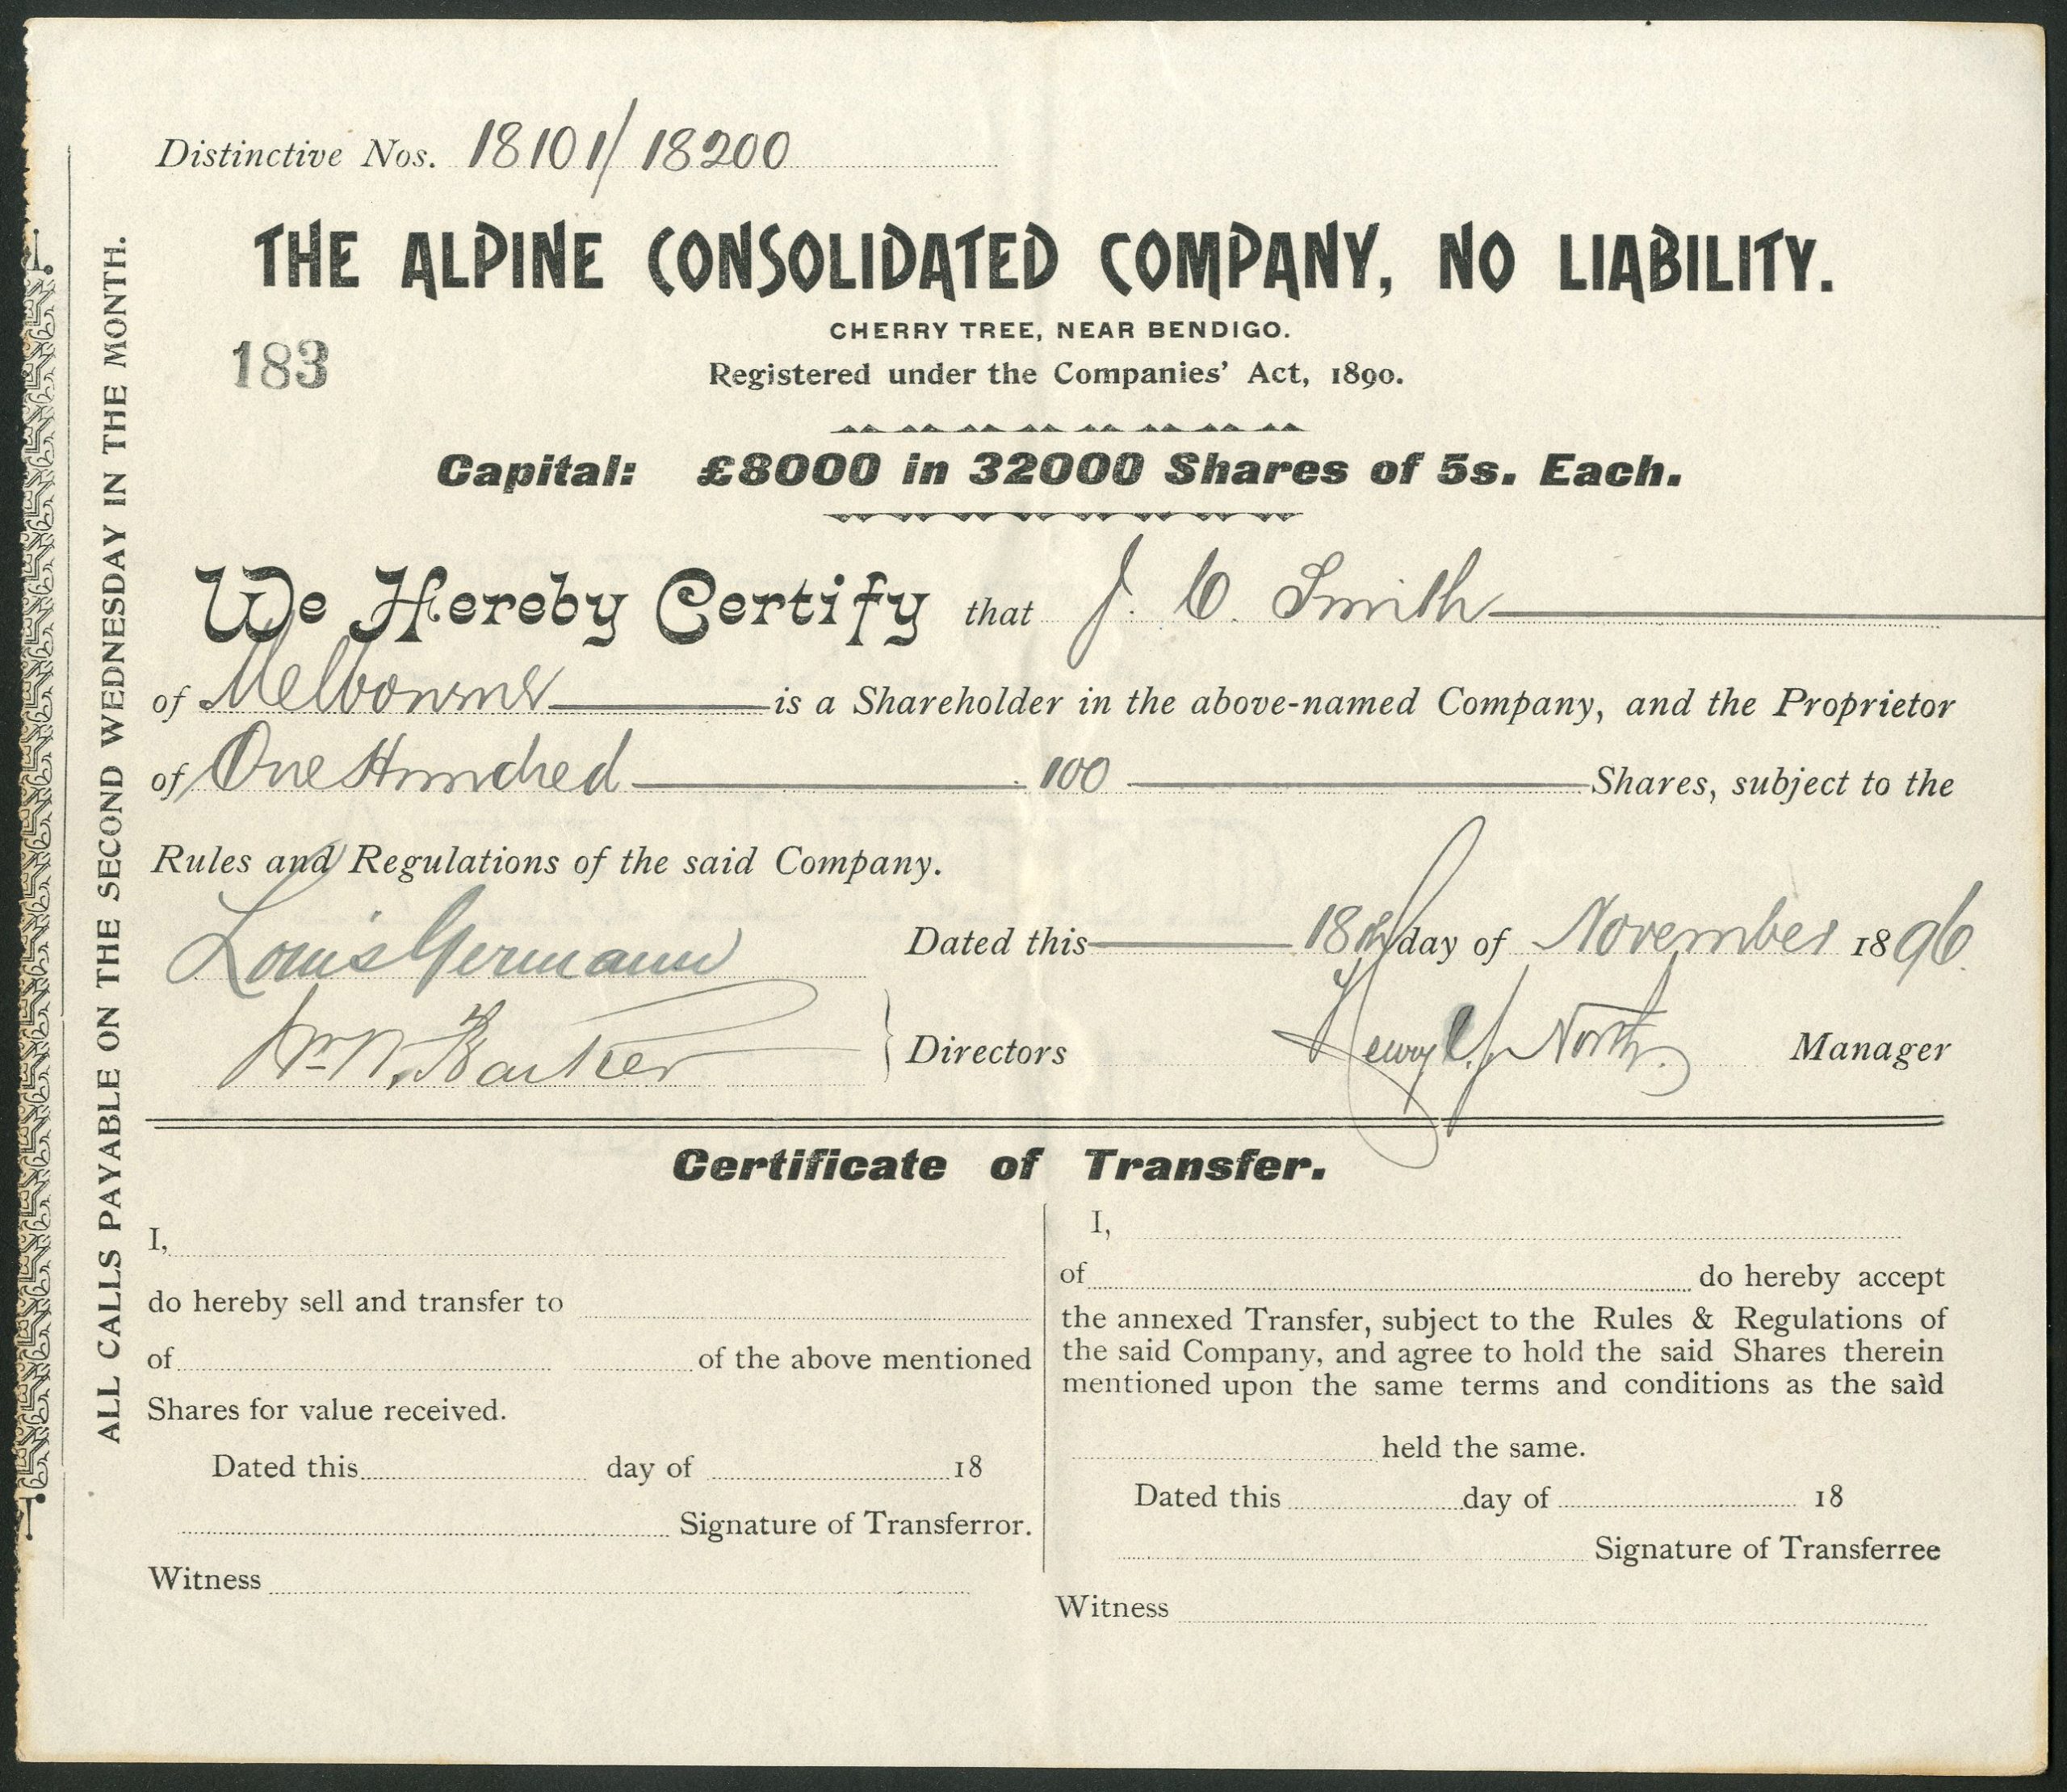 Distinctive Nos. 18101/18200
THE ALPINE CONSOLIDATED COMPANY, NO LIABILITY.
CHERRY TREE, NEAR BENDIGO.
183
Registered under the Companies' Act, 1890.
Capital: £8000 in 32000 Shares of 5s. Each.
We Hereby Certify that J. C. Smith
of Melbourne is a Shareholder in the above-named Company, and the Proprietor
of One Hundred 100 Shares, subject to the
Rules and Regulations of the said Company.
Louis Germann
Dated this 18th day of November 1896.
Wm N. Barker
Directors
Henry North Manager
ALL CALLS PAYABLE ON THE SECOND WEDNESDAY IN THE MONTH.
Certificate of Transfer.
I,
do hereby sell and transfer to
of of the above mentioned
Shares for value received.
Dated this day of 18
Signature of Transferror.
Witness
I,
of do hereby accept
the annexed Transfer, subject to the Rules & Regulations of
the said Company, and agree to hold the said Shares therein
mentioned upon the same terms and conditions as the said
held the same.
Dated this day of 18
Signature of Transferree
Witness